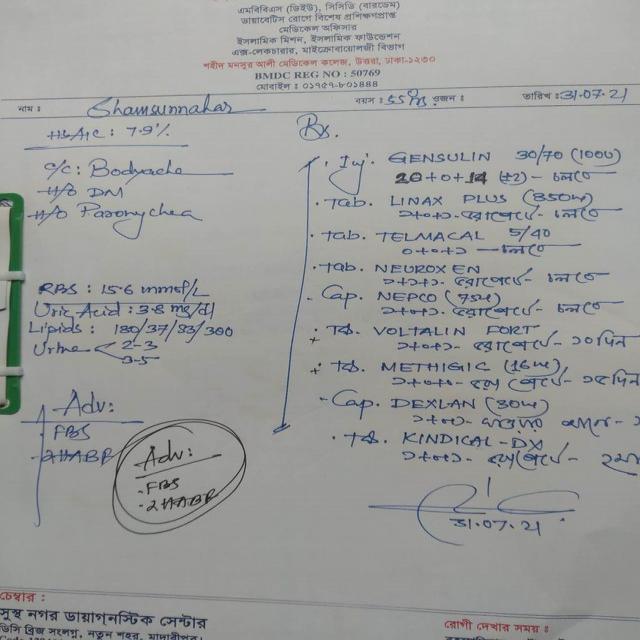 এমবিবিএস (ডিইউ), সিসিডি (বারডেম)
ডায়াবেটিস রোগে বিশেষ প্রশিক্ষণপ্রাপ্ত
মেডিকেল অফিসার
ইসলামিক মিশন, ইসলামিক ফাউন্ডেশন
এক্স-লেকচারার, মাইক্রোবায়োলজী বিভাগ
শহীদ মনসুর আলী মেডিকেল কলেজ, উত্তরা, ঢাকা-১২৩০
BMDC REG NO : 50769
মোবাইল : ০১৭৫৭-৮০১৪৪৪
নাম : Shamsunnahar বয়স : 55 ওজন : তারিখ : 31-07-21
HbA1C : 7.9%
C/C : Bodyache
H/O DM
H/O Paronychea
RBS : 15.6 mmol/L
Uric Acid : 3.8 mg/dl
Lipids : 180/37/83/300
Urine 2-3
3-5
Adv :
FBS
2HABF
Adv :
- FBS
- 2HABF
Rx.
Inj. GENSULIN 30/70 (100U)
20+0+14 (±2) - চলবে
Tab. LINAX PLUS (850mg)
১+০+১ - চলবে
Tab. TELMACAL 5/40
০+০+১ - চলবে
Tab. NEUROXEN
১+০+১ - চলবে
Cap. NEPCO (75mg)
১+০+১ - চলবে
Tab. VOLTALIN FORT
১+০+১ - ১০ দিন
Tab. METHIGIC (16mg)
১+০+১ - ১৫ দিন
Cap. DEXLAN (30mg)
১+০+১
Tab. KINDICAL-DX
১+০+১
31.07.21
চেম্বার :
সুস্থ নগর ডায়াগনস্টিক সেন্টার
ডিসি ব্রিজ সংলগ্ন, নতুন শহর, মাদারীপুর।
রোগী দেখার সময় :